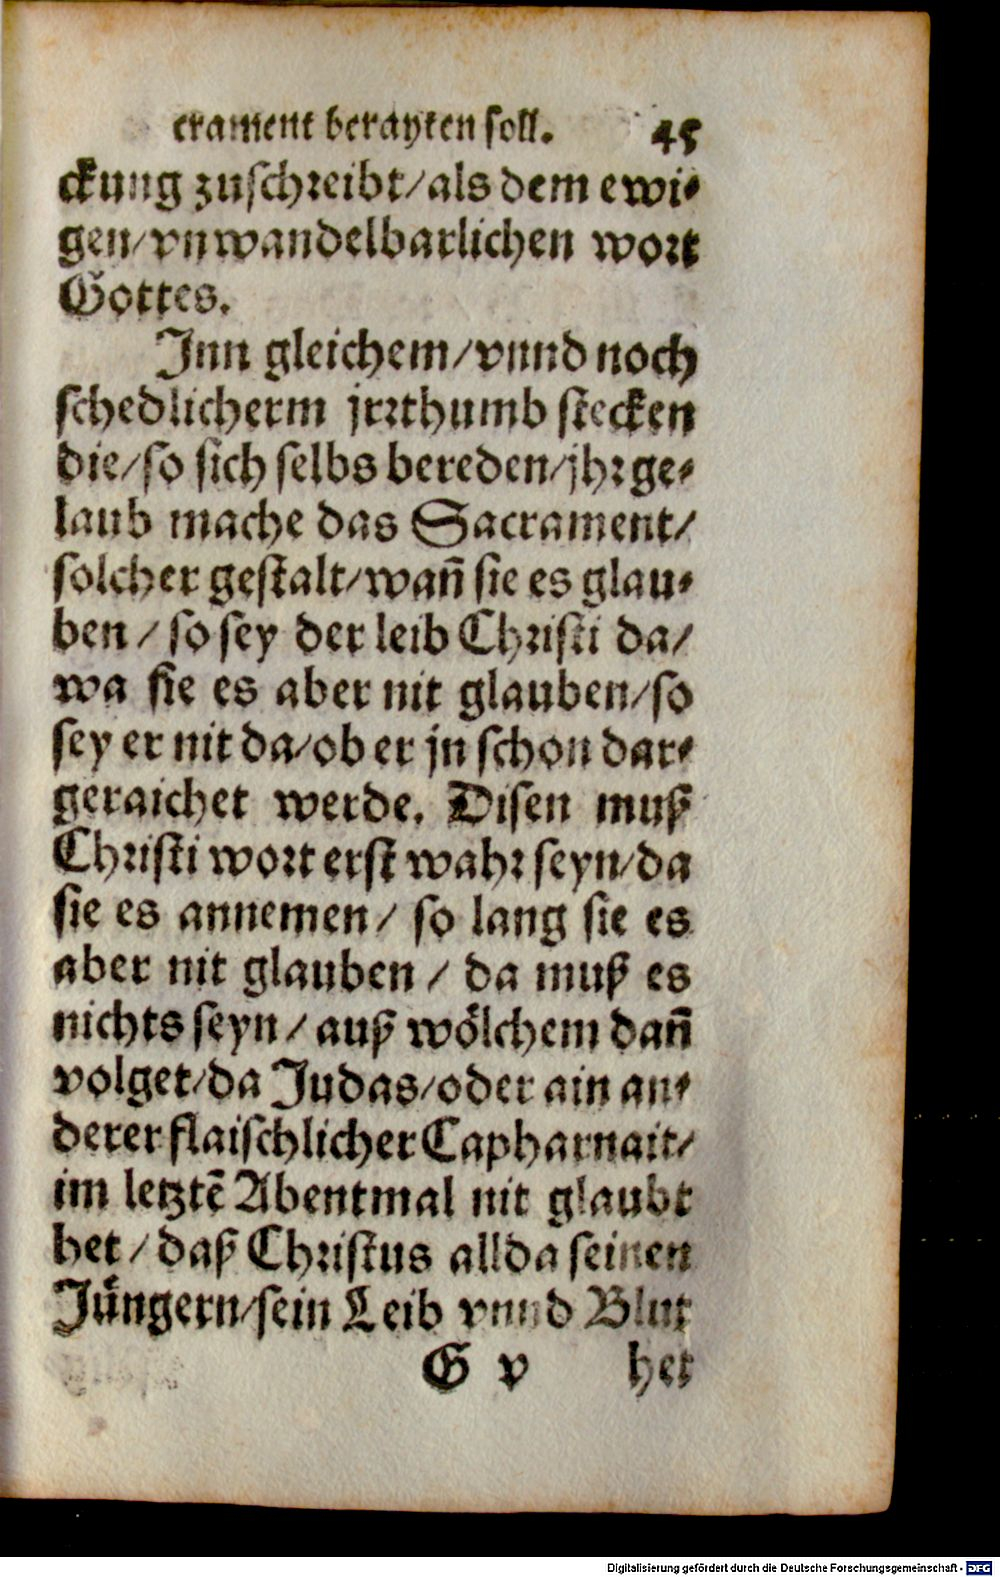 crament berayten soll. 45
ckung zuschreibt/als dem ewi⸗
gen/vnwandelbarlichen wort
Gottes.
Jnn gleichem/vnnd noch
schedlicherm jrrthumb stecken
die/so sich selbs bereden/jhr ge⸗
laub mache das Sacrament/
solcher gestalt/wañ sie es glau⸗
ben / so sey der leib Christi da/
wa sie es aber nit glauben/so
sey er nit da/ob er jn schon dar⸗
geraichet werde. Disen muß
Christi wort erst wahr seyn/da
sie es annemen/ so lang sie es
aber nit glauben / da muß es
nichts seyn / auß wölchem dañ
volget/da Judas/oder ain an⸗
derer flaischlicher Capharnait/
im letztẽ Abentmal nit glaubt
het / daß Christus allda seinen
Jüngern/sein Leib vnnd Blut
G v het
Digitalisierung gefördert durch die Deutsche Forschungsgemeinschaft - DFG